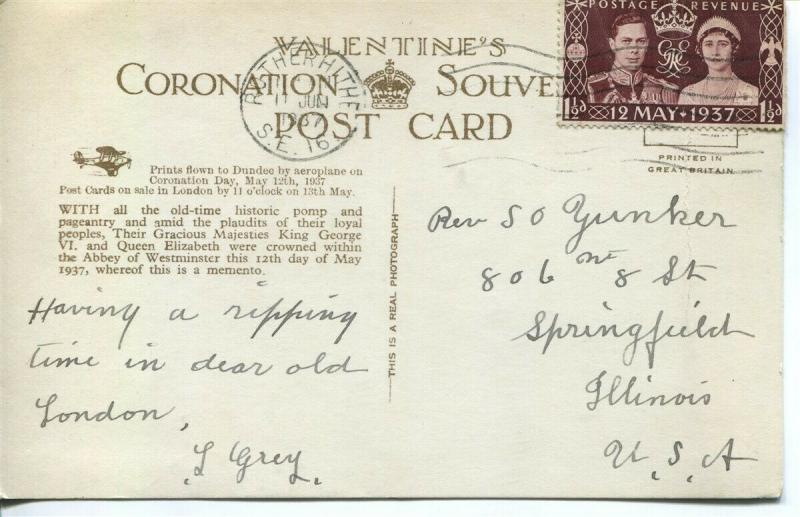 VALENTINE'S
CORONATION SOUVE
POST CARD
ROTHERHITHE
11 JUN
1937
S.E.16
POSTAGE REVENUE
1½D 12 MAY • 1937 1½D
PRINTED IN
GREAT BRITAIN.
Prints flown to Dundee by aeroplane on
Coronation Day, May 12th, 1937
Post Cards on sale in London by 11 o'clock on 13th May.
WITH all the old-time historic pomp and
pageantry and amid the plaudits of their loyal
peoples, Their Gracious Majesties King George
VI. and Queen Elizabeth were crowned within
the Abbey of Westminster this 12th day of May
1937, whereof this is a memento.
Having a ripping
time in dear old
London,
L Grey
THIS IS A REAL PHOTOGRAPH
Rev S O Yunker
806 8 St
Springfield
Illinois
U.S.A